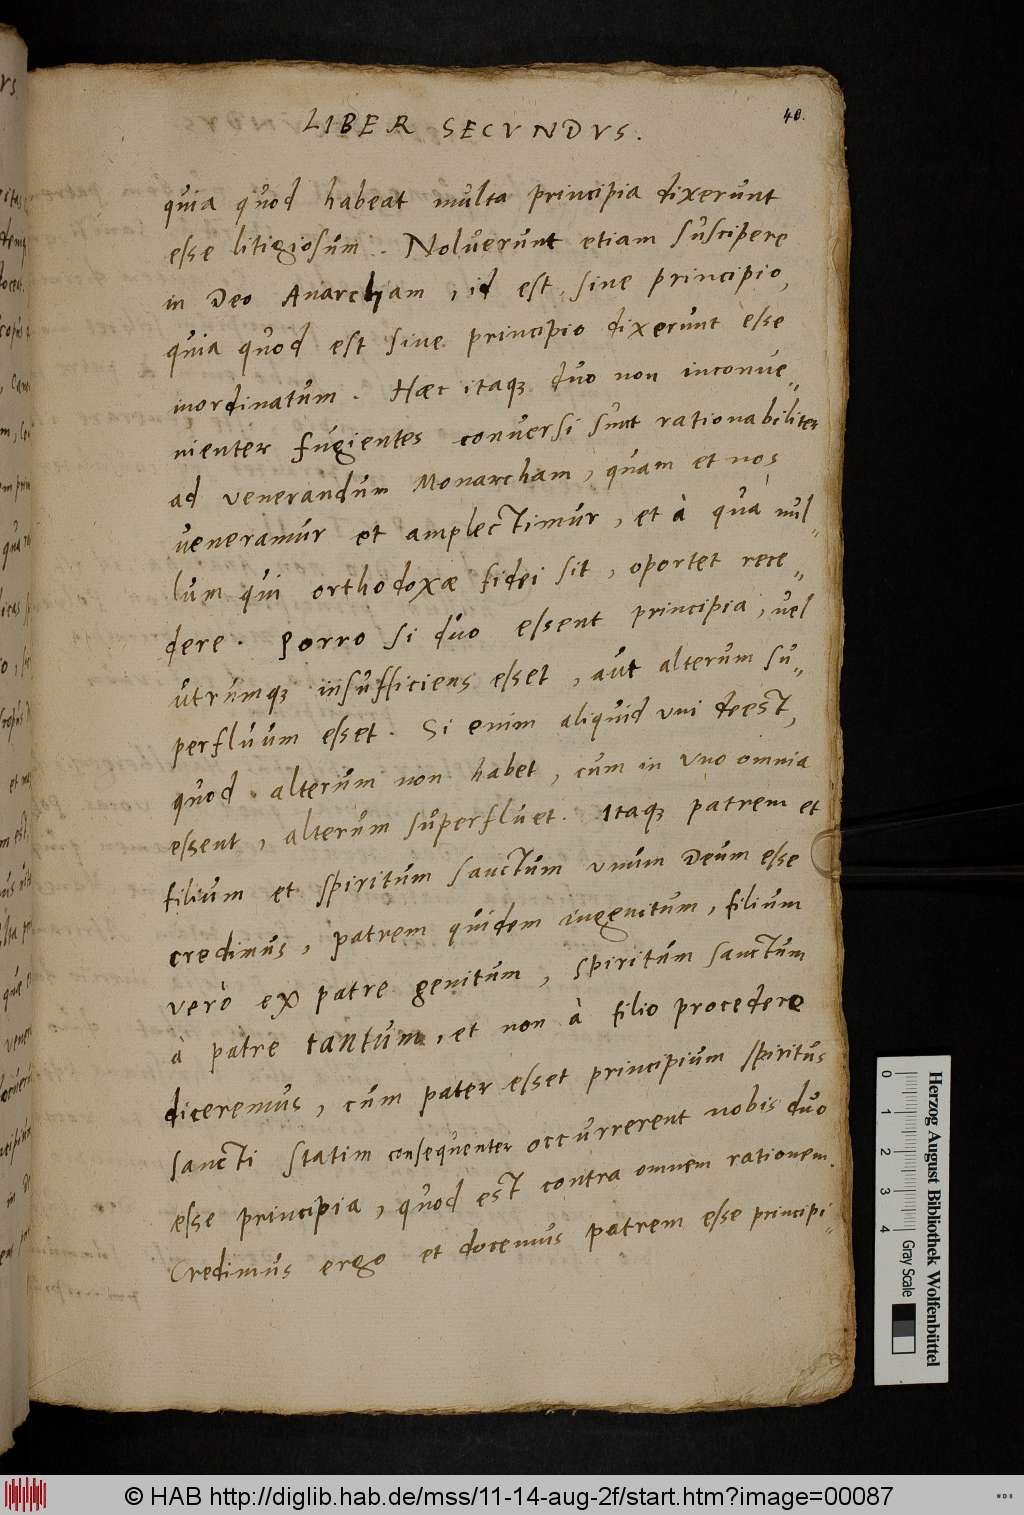 LIBER SECVNDVS.
40.
quia quod habeat multa principia dixerunt
esse litigiosum. Noluerunt etiam suscipere
in Deo Anarcham, id est, sine principio,
quia quod est sine principio dixerunt esse
inordinatum. Hæc itaqȝ duo non inconue„
nienter fugientes conuersi sunt rationabiliter
ad venerandum Monarcham, quam et nos
veneramur et amplectimur, et à qua nul„
lum qui orthodoxæ fidei sit, oportet rece„
dere. Porro si duo essent principia, vel
utrumqȝ insufficiens esset, aut alterum su„
perfluum esset. Si enim aliquid vni deest,
quod alterum non habet, cum in vno omnia
essent, alterum superfluet. Itaqȝ patrem et
filium et spiritum sanctum vnum Deum esse
credimus, patrem quidem ingenitum, filium
verò ex patre genitum, spiritum sanctum
à patre tantum, et non à filio procedere
diceremus, cum pater esset principium spiritus
sancti statim consequenter occurrerent nobis duo
esse principia, quod est contra omnem rationem.
Credimus ergo et docemus patrem esse principi„
Herzog August Bibliothek Wolfenbüttel
0 1 2 3 4 Gray Scale
© HAB http://diglib.hab.de/mss/11-14-aug-2f/start.htm?image=00087